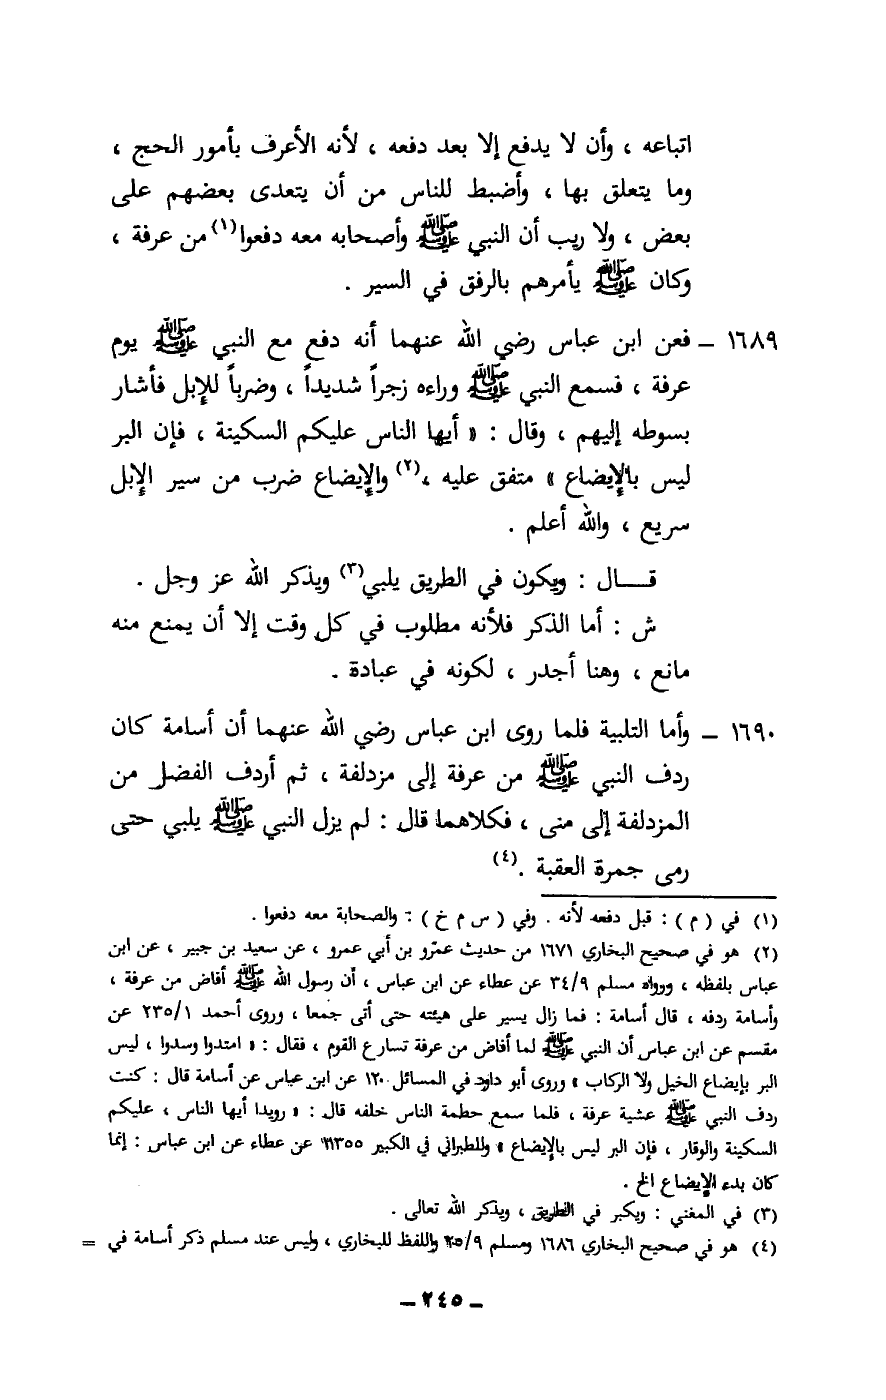 اتباعه ، وأن لا يدفع إلا بعد دفعه ، لأنه الأعرف بأمور الحج ،
وما يتعلق بها ، وأضبط للناس من أن يتعدى بعضهم على
بعض ، ولا ريب أن النبي ﷺ وأصحابه معه دفعوا(١) من عرفة ،
وكان ﷺ يأمرهم بالرفق في السير .
١٦٨٩ – فعن ابن عباس رضي الله عنهما أنه دفع مع النبي ﷺ يوم
عرفة ، فسمع النبي ﷺ وراءه زجراً شديداً ، وضرباً للإبل فأشار
بسوطه إليهم ، وقال : « أيها الناس عليكم السكينة ، فإن البر
ليس بالإيضاع » متفق عليه ،(٢) والإيضاع ضرب من سير الإبل
سريع ، والله أعلم .
قـــال : ويكون في الطريق يلبي(٣) ويذكر الله عز وجل .
ش : أما الذكر فلأنه مطلوب في كل وقت إلا أن يمنع منه
مانع ، وهنا أجدر ، لكونه في عبادة .
١٦٩٠ – وأما التلبية فلما روى ابن عباس رضي الله عنهما أن أسامة كان
ردف النبي ﷺ من عرفة إلى مزدلفة ، ثم أردف الفضل من
المزدلفة إلى منى ، فكلاهما قال : لم يزل النبي ﷺ يلبي حتى
رمى جمرة العقبة .(٤)
(١) في ( م ) : قبل دفعه لأنه . وفي ( س م خ ) : والصحابة معه دفعوا .
(٢) هو في صحيح البخاري ١٦٧١ من حديث عمرو بن أبي عمرو ، عن سعيد بن جبير ، عن ابن
عباس بلفظه ، ورواه مسلم ٣٤/٩ عن عطاء عن ابن عباس ، أن رسول الله ﷺ أفاض من عرفة ،
وأسامة ردفه ، قال أسامة : فما زال يسير على هيئته حتى أتى جمعا ، وروى أحمد ٢٣٥/١ عن
مقسم عن ابن عباس أن النبي ﷺ لما أفاض من عرفة تسارع القوم ، فقال : « امتدوا وسدوا ، ليس
البر بإيضاع الخيل ولا الركاب » وروى أبو داود في المسائل ١٢٠ عن ابن عباس عن أسامة قال : كنت
ردف النبي ﷺ عشية عرفة ، فلما سمع حطمة الناس خلفه قال : « رويدا أيها الناس ، عليكم
السكينة والوقار ، فإن البر ليس بالإيضاع » وللطبراني في الكبير عن عطاء عن ابن عباس : إنما
كان بدء الإيضاع الخ .
(٣) في المغني : ويكبر في الطريق ، ويذكر الله تعالى .
(٤) هو في صحيح البخاري ١٦٨٦ ومسلم واللفظ للبخاري ، وليس عند مسلم ذكر أسامة في =
– ٢٤٥ –